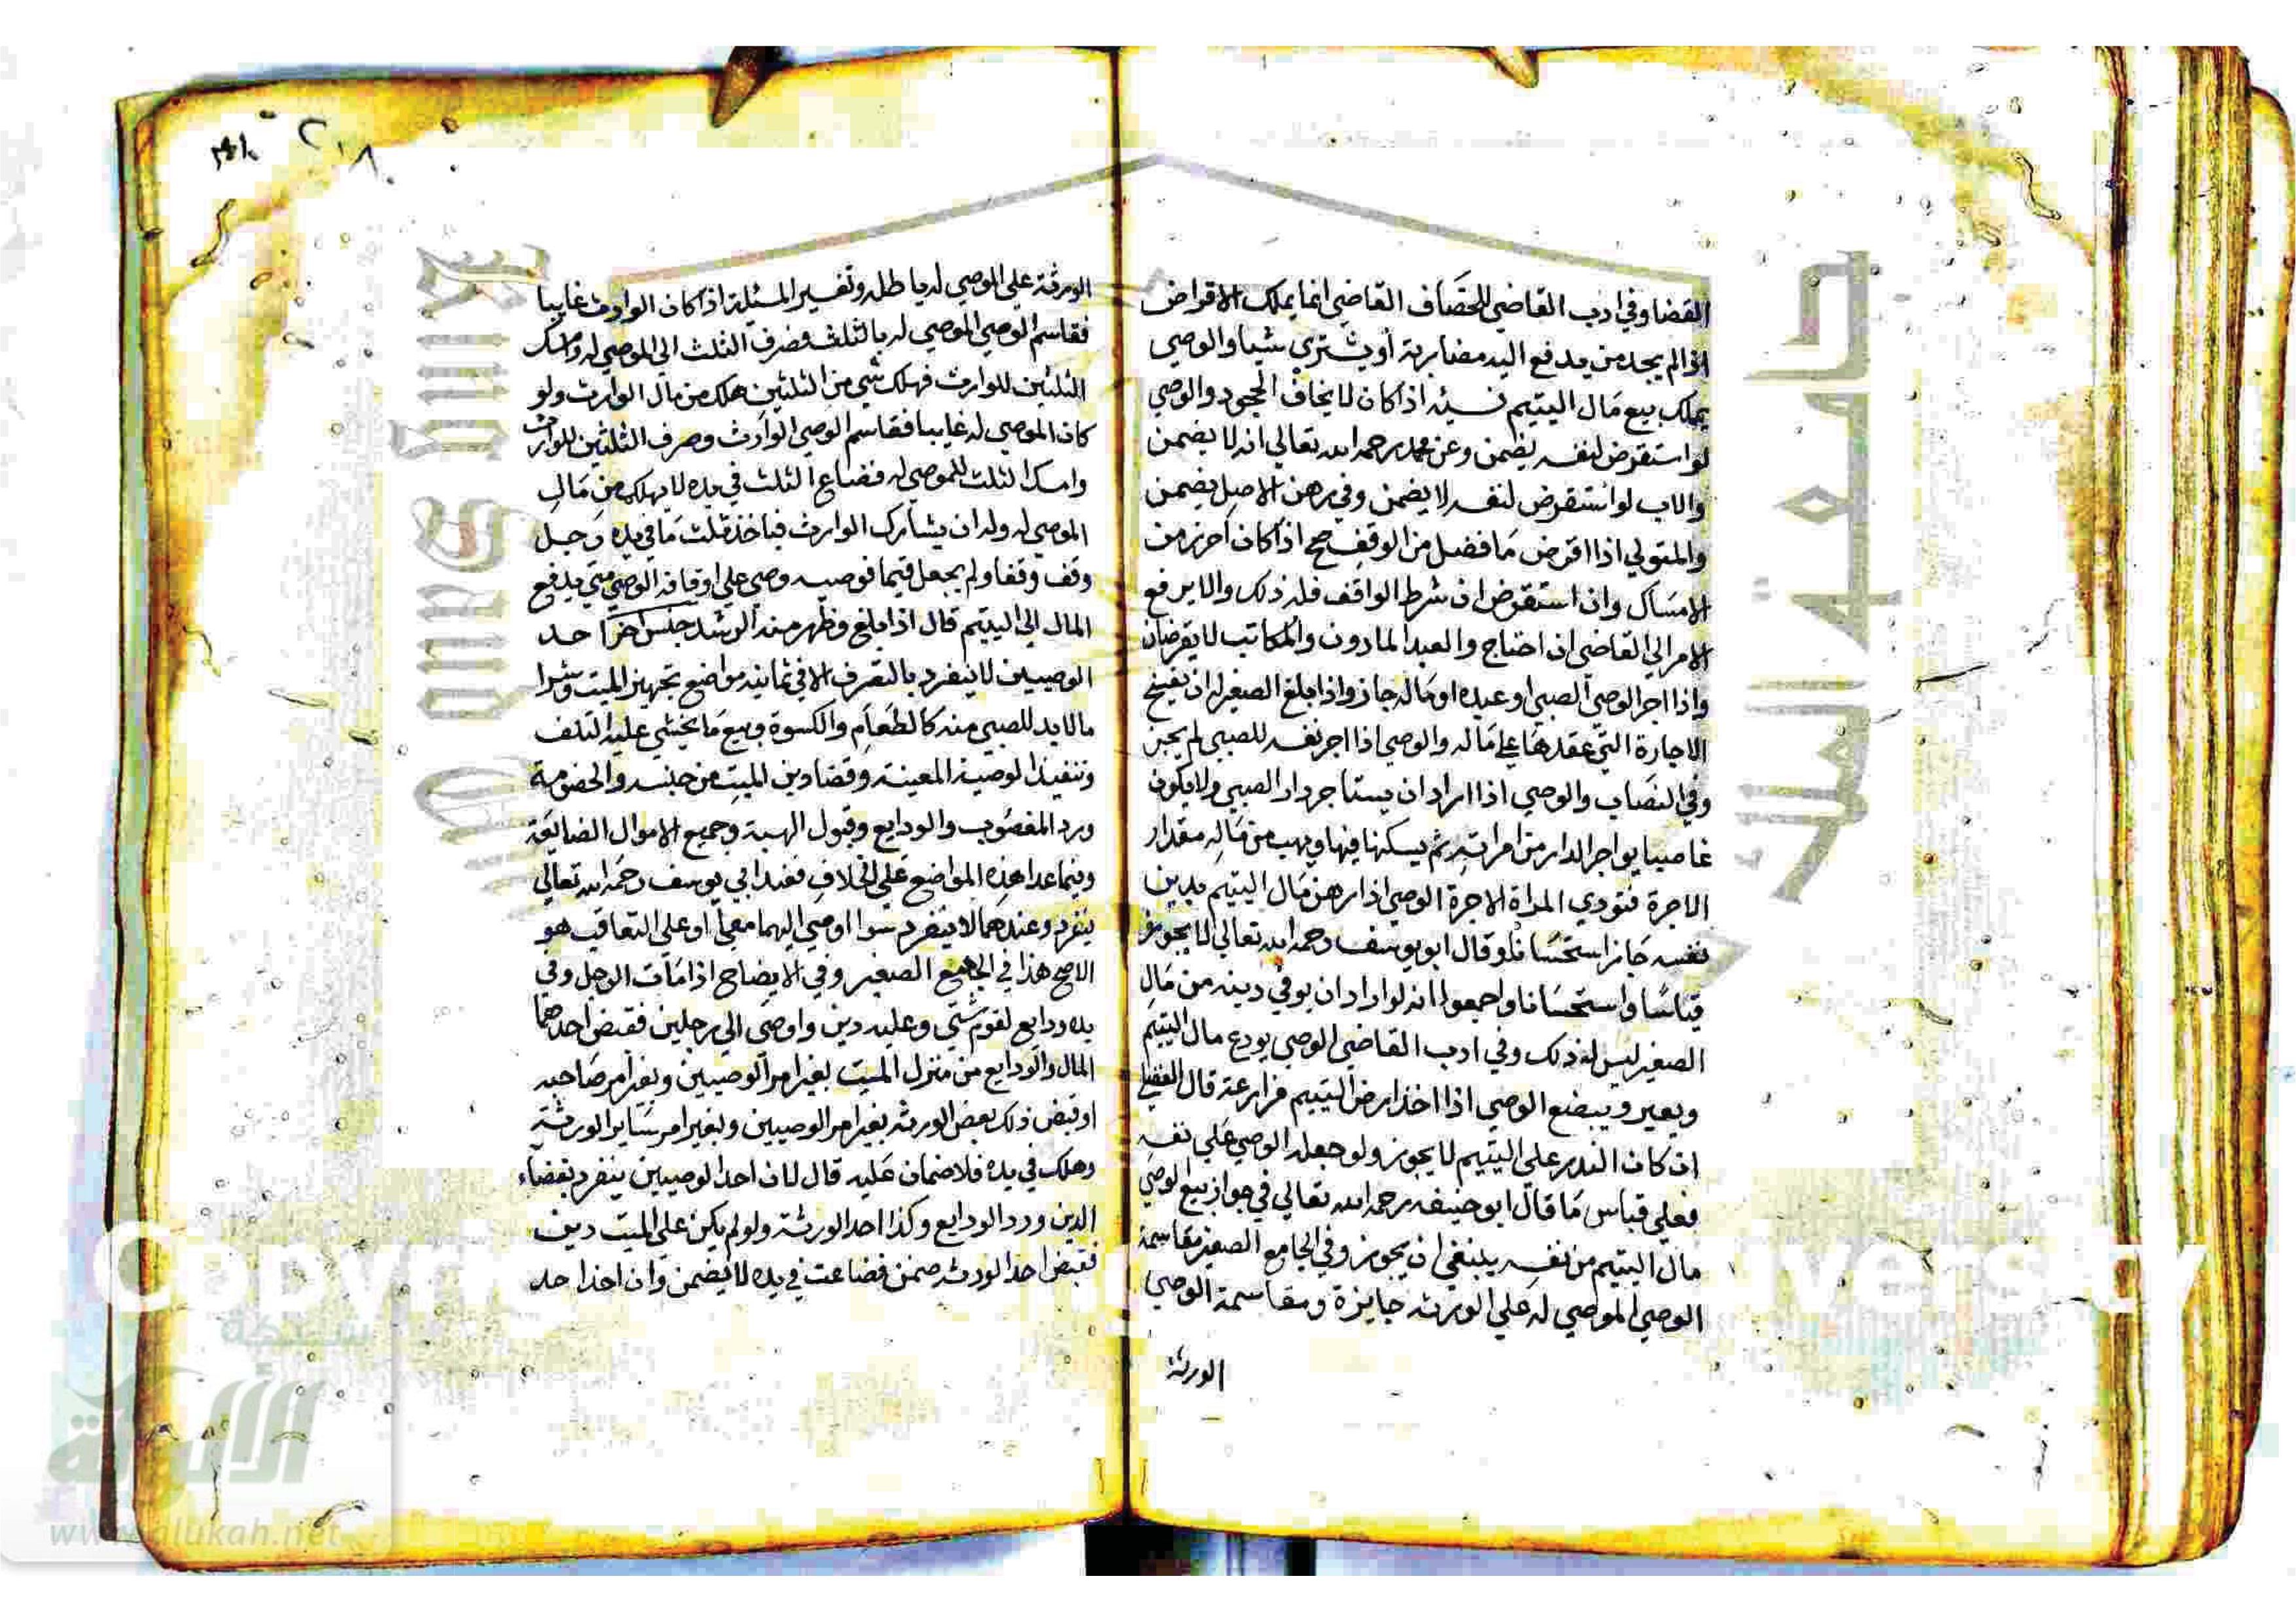 القضا وفي ادب القاضي للخصاف القاضي انما يملك الاقراض
اذا لم يجد من يدفع اليه مضاربة أو يشتري شيا والوصي
يملك بيع مال اليتيم نسيئه اذا كان لا يخاف الجحود والوصي
لو استقرض لنفسه يضمن وعن محمد رحمه الله تعالى انه لا يضمن
والاب لو استقرض لنفسه لا يضمن وفي رهن الاصل يضمن
والمتولي اذا اقرض ما فضل من الوقف صح اذا كان احرز من
الامساك وان استقرض ان شرط الواقف فله ذلك والا يرفع
الامر الي القاضي ان احتاج والعبد المادون والمكاتب لا يقرضان
واذا اجر الوصي الصبي او عبده او ماله جاز واذا بلغ الصغير له ان يفسخ
الاجارة التي عقدها علي ماله والوصي اذا اجر نفسه للصبي لم يجز
وفي النصاب والوصي اذا اراد ان يستاجر دار الصبي ولا يكون
غاصبا يواجر الدار من امراته ثم يسكنها فيها ويهب من ماله مقدار
الاجرة فتودي المراة الاجرة الوصي اذا رهن مال اليتيم بدين
نفسه جاز استحسانا وقال ابو يوسف رحمه الله تعالى لا يجوز
قياسا واستحسانا واجمعوا انه لو اراد ان يوفي دينه من مال
الصغير ليس له ذلك وفي ادب القاضي الوصي يودع مال اليتيم
ويعير ويبضع الوصي اذا اخذ ارض اليتيم مزارعة قال
ان كان البذر علي اليتيم لا يجوز ولو جعله الوصي علي نفسه
فعلي قياس ما قال ابو حنيفه رحمه الله تعالي في جواز بيع الوصي
مال اليتيم من نفسه ينبغي ان يجوز وفي الجامع الصغير مقاسمة
الوصي الموصي له علي الورثه جايزة ومقاسمة الوصي
الورثة
٢١٨
الورثة علي الموصي له باطله وتفسير المسئلة اذا كان الوارث غايبا
فقاسم الوصي الموصي له بالثلث وصرف الثلث الي الموصي له وامسك
الثلثين للوارث فهلك شي من الثلثين هلك من مال الوارث ولو
كان الموصي له غايبا فقاسم الوصي الوارث وصرف الثلثين للوارث
وامسك الثلث للموصي له فضاع الثلث في يده لا يهلك من مال
الموصي له وله ان يشارك الوارث فياخذ ثلث ما في يده رجل
وقف وقفا ولم يجعل قيما فوصيه وصي علي اوقافه الوصي متي يدفع
المال الي اليتيم قال اذا بلغ وظهر منه الرشد جنس اخر احد
الوصيين لا ينفرد بالتصرف الا في ثمانيه مواضع تجهيز الميت وشرا
مالابد للصبي منه كالطعام والكسوة وبيع ما يخشي عليه التلف
وتنفيذ الوصية المعينة وقضا دين الميت من جنسه والخصومة
ورد المغصوب والودايع وقبول الهبة وجميع الاموال الضايعة
وفيما عدا هذه المواضع علي الخلاف فعند ابي يوسف رحمه الله تعالي
ينفرد وعندهما لا ينفرد سوا اوصي اليهما معا او علي التعاقب هو
الاصح هذا في الجامع الصغير وفي الايضاح اذا مات الرجل وفي
يده ودايع لقوم شتي وعليه دين واوصي الي رجلين فقبض احدهما
المال والودايع من منزل الميت بغير امر الوصيين وبغير امر صاحبه
او قبض ذلك بعض الورثه بغير امر الوصيين وبغير امر ساير الورثة
وهلك في يده فلا ضمان عليه قال لان احد الوصيين ينفرد بقضاء
الدين ورد الودايع وكذا احد الورثة ولو لم يكن علي الميت دين
فقبض احد الورثه ضمن فضاعت في يده لا يضمن وان اخذ احد
جامعة الملك
شبكة
الألوكة
www.alukah.net